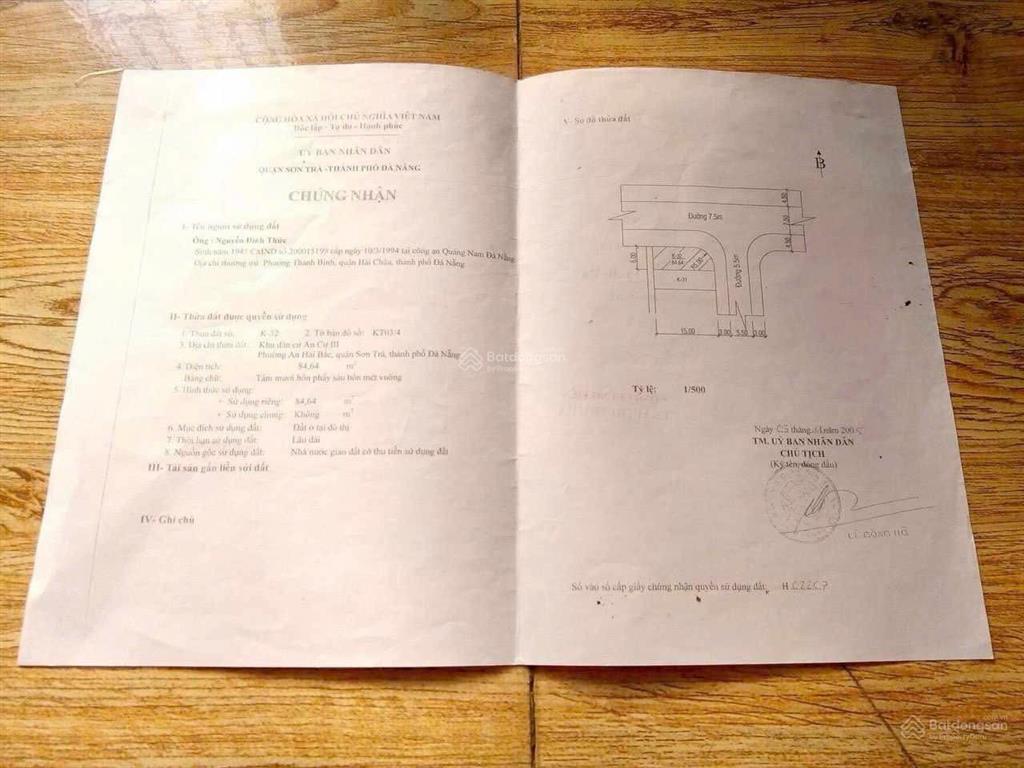 CỘNG HÒA XÃ HỘI CHỦ NGHĨA VIỆT NAM
Độc lập - Tự do - Hạnh phúc
UỶ BAN NHÂN DÂN
QUẬN SƠN TRÀ - THÀNH PHỐ ĐÀ NẴNG
CHỨNG NHẬN
I- Tên người sử dụng đất
Ông : Nguyễn Đình Thức
Sinh năm 1947 CMND số 200015199 cấp ngày 10/3/1994 tại công an Quảng Nam Đà Nẵng
Địa chỉ thường trú: Phường Thanh Bình, quận Hải Châu, thành phố Đà Nẵng
II- Thửa đất được quyền sử dụng
1. Thửa đất số: K-32 2. Tờ bản đồ số: KT03/4
3. Địa chỉ thửa đất: Khu dân cư An Cư III
Phường An Hải Bắc, quận Sơn Trà, thành phố Đà Nẵng
4. Diện tích: 84,64 m²
Bằng chữ: Tám mươi bốn phẩy sáu bốn mét vuông
5. Hình thức sử dụng:
+ Sử dụng riêng: 84,64 m²
+ Sử dụng chung: Không m²
6. Mục đích sử dụng đất: Đất ở tại đô thị
7. Thời hạn sử dụng đất: Lâu dài
8. Nguồn gốc sử dụng đất: Nhà nước giao đất có thu tiền sử dụng đất
III- Tài sản gắn liền với đất
IV- Ghi chú
V- Sơ đồ thửa đất
B
Đường 7.5m
4.50
7.50
4.50
6.00
K-32
84.64
R5.00
K-31
Đường 5.5m
15.00
3.00
5.50
3.00
Tỷ lệ: 1/500
Ngày tháng năm 200
TM. UỶ BAN NHÂN DÂN
CHỦ TỊCH
(Ký tên, đóng dấu)
Số vào sổ cấp giấy chứng nhận quyền sử dụng đất: H
Batdongsan
by PropertyGuru
Batdongsan
.com.vn
by PropertyGuru